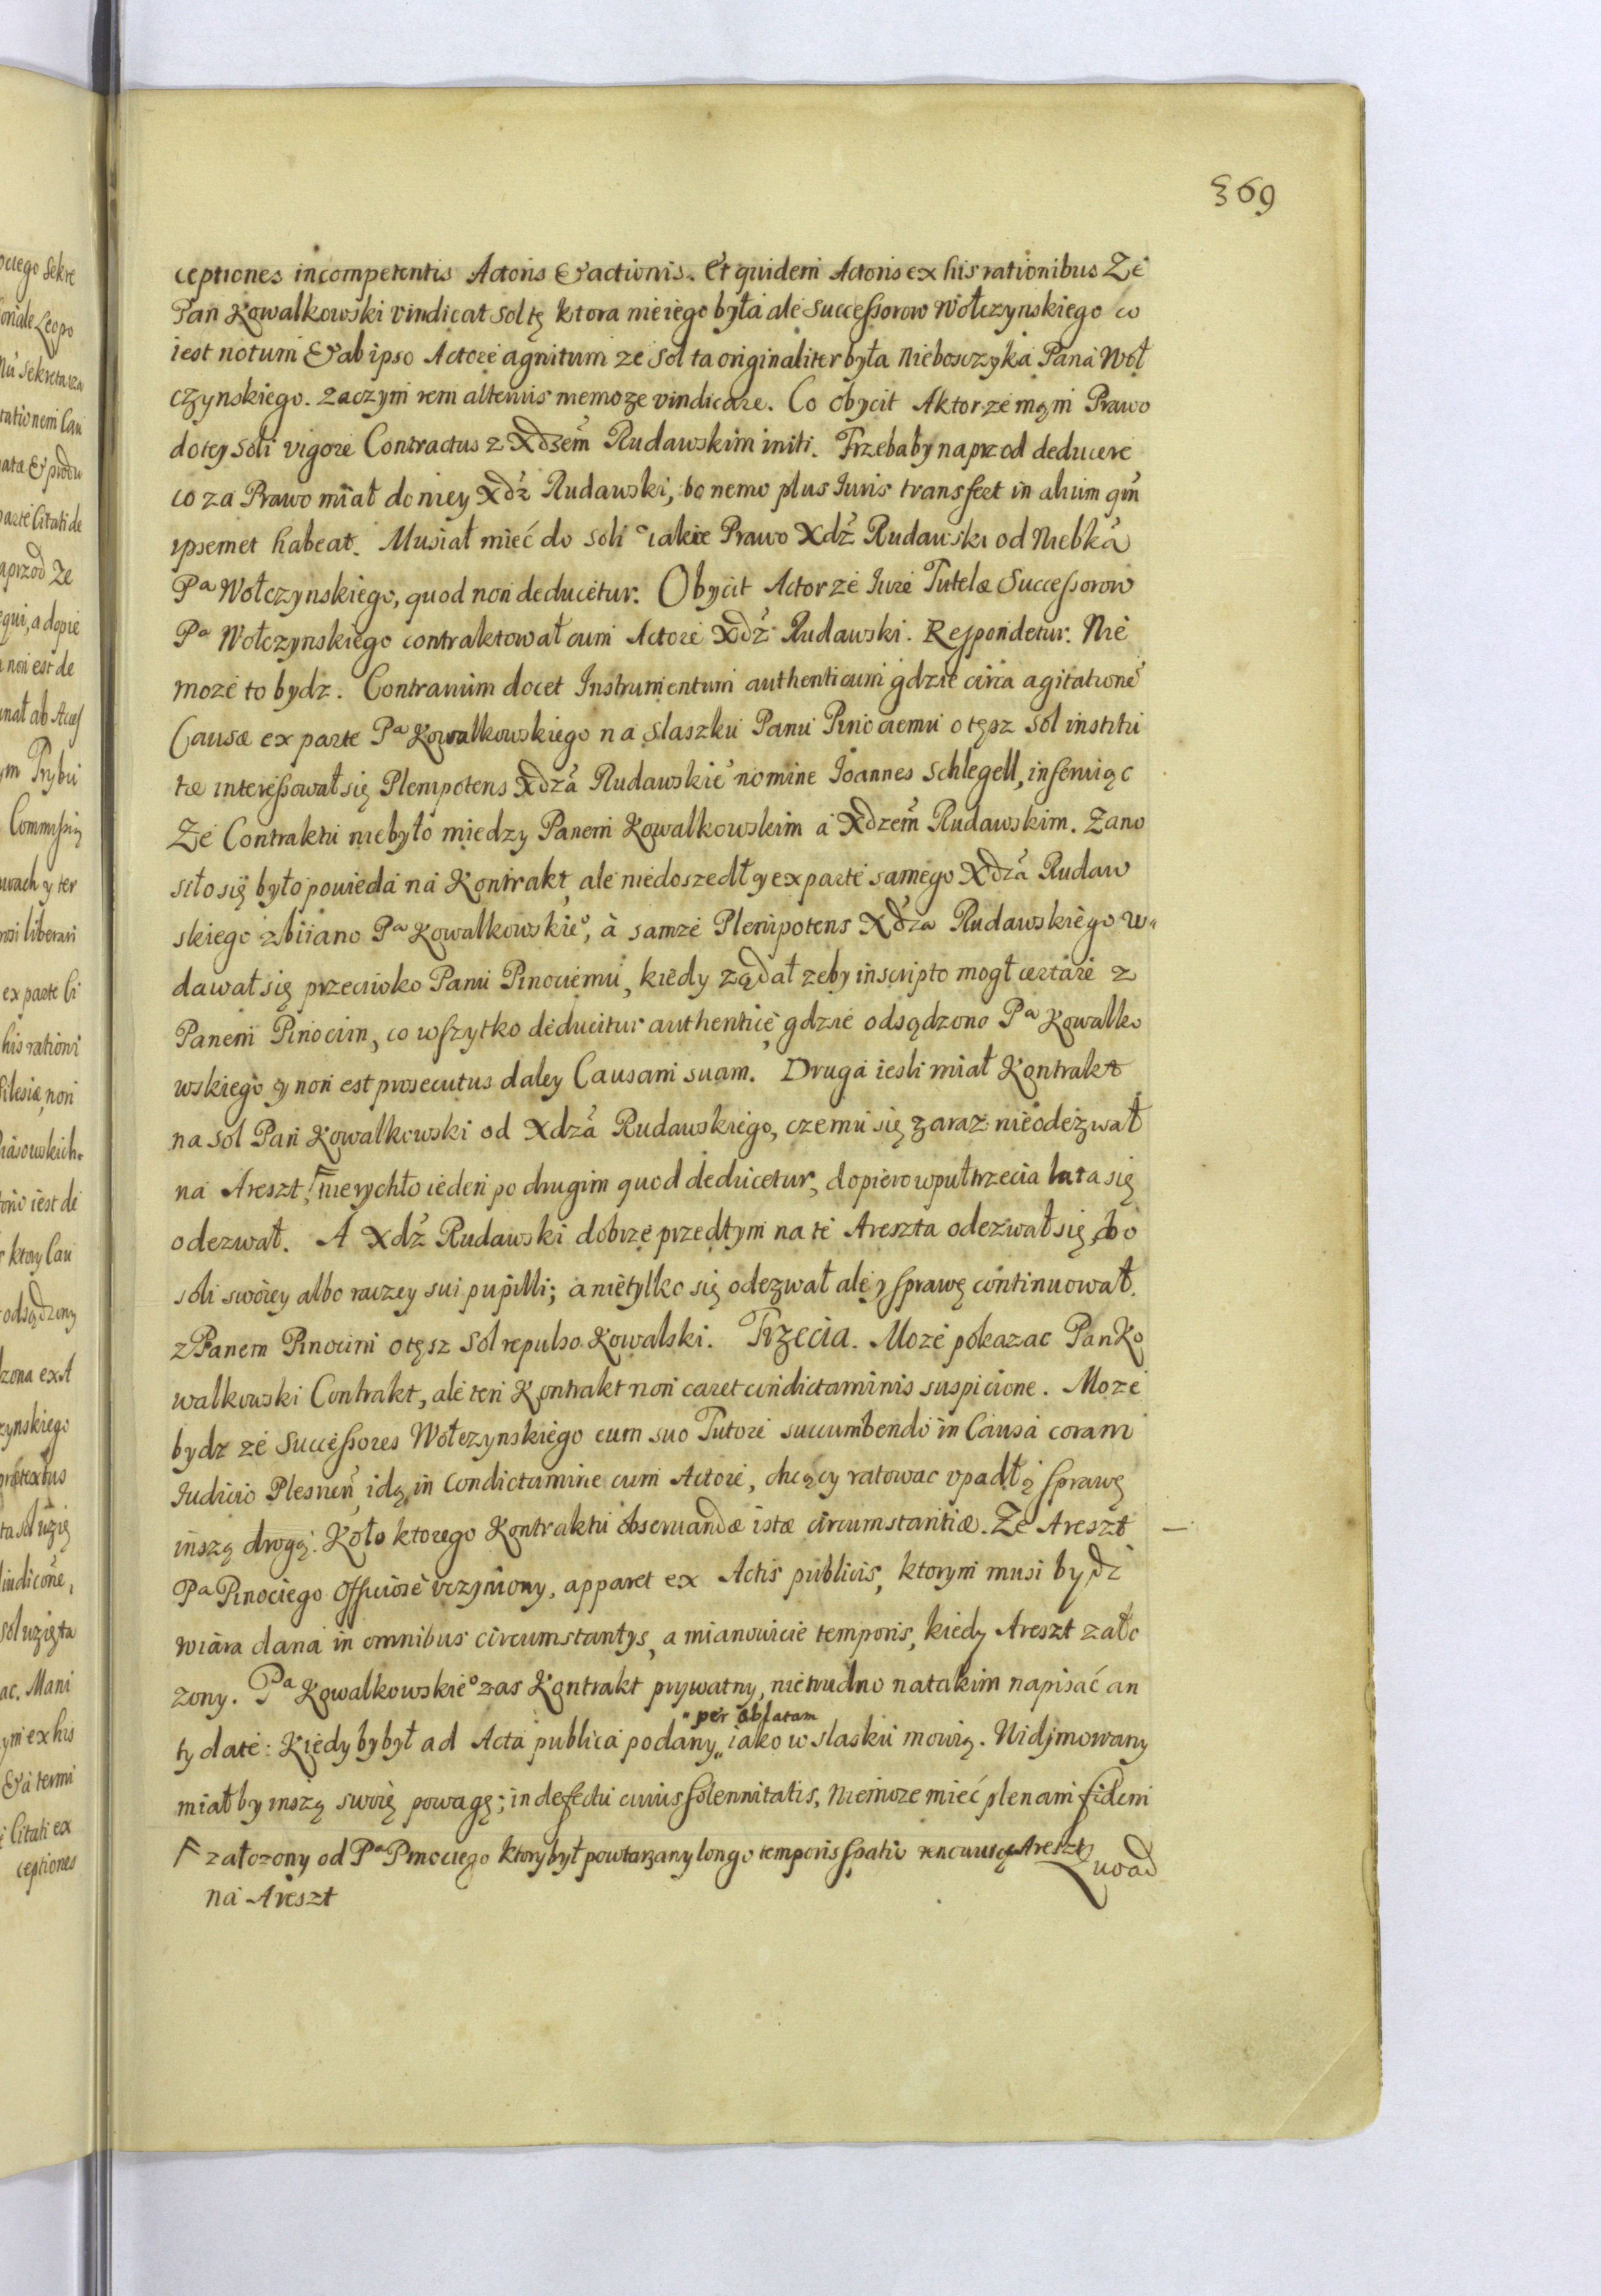 369
ceptiones incompetentis Actoris & actionis. Et quidem Actoris ex his rationibus Ze
Pan Kowalkowski vindicat sol tę ktora nie iego była ale Successorow Wołczynskiego co
iest notum & ab ipso Actore agnitum ze sol ta originaliter była Nieboszczyka Pana Woł
czynskiego. Zaczym rem alterius niemoze vindicare. Co obycit Aktor ze mąm Prawo
do tey soli vigore Contractus z Xdzem Rudawskim initi. Trzebaby naprzod deducere
co za Prawo miał do niey Xdz Rudawski, bo nemo plus Iuris transfert in alium qm̃
ipsemet habeat. Musiał mieć do soli iakie Prawo Xdz Rudawski od Niebka
Pa Wołczynskiego, quod non deducetur. Obycit Actor ze Iure Tutelæ Successorow
Pa Wołczynskiego contraktował cum Actore Xdz Rudawski. Respondetur. Nie
moze to bydz. Contrarium docet Instrumentum authenticum gdzie circa agitatione
Causæ ex parte Pa Kowalkowskiego na Slaszku Panu Pinociemu o tęsz sol institu
tæ interessował się Plenipotens Xdza Rudawskie° nomine Ioannes Schlegell, inferuiąc
Ze Contraktu niebyło miedzy Panem Kowalkowskim a Xdzem Rudawskim. Zano
siło się było powieda na Kontrakt, ale niedoszedł y ex parte samego Xdza Rudaw
skiego zbiiano Pa Kowalkowskie°, à samze Plenipotens Xdza Rudawskiego w
dawał się przeciwko Panu Pinociemu, kiedy ządał zeby in scripto mogł certare z
Panem Pinocim, co wszytko deducitur authenticè, gdzie odsądzono Pa Kowalko
wskiego y non est prosecutus daley Causam suam. Druga iesli miał Kontrakt
na sol Pan Kowalkowski od Xdza Rudawskiego, czemu się zaraz nieodezwał
na Areszt, F nierychło ieden po drugim quod deducetur, dopiero w pułtrzecia lata się
odezwał. A Xdz Rudawski dobrze przedtym na te Areszta odezwał się, do
soli swoiey albo raczey sui pupilli; a nietylko się odezwał ale y sprawę continuował
z Panem Pinocim o tęsz sol repulso Kowalski. Trzecia. Moze pokazac Pan Ko
walkowski Contrakt, ale ten Kontrakt non caret condictaminis suspicione. Moze
bydz ze Successores Wołczynskiego cum suo Tutore succumbendo in Causa coram
Iudicio Plesnen̄, idą in Condictamine cum Actore, chcący ratowac vpadłą sprawę
inszą drogą. Koło ktorego Kontraktu obseruandæ istæ circumstantiæ. Ze Areszt
Pa Pinociego Officiose vczyniony, apparet ex Actis publicis, ktorym musi bydz
wiara dana in omnibus circumstantys, a mianowicie temporis, kiedy Areszt zało
zony. Pa Kowalkowskie° zas Kontrakt prywatny, nietrudno na takim napisać an
" per oblatam
ty date: Kiedyby był ad Acta publica podany „ iako w Slasku mowią. Nidymowany
miałby inszą swoię powagę; in defectu cuius solennitatis, Niemoze mieć plenam fidem
F załozony od Pa Pinociego ktory był powtarzany longo temporis spatio renouuiąc Areszt
na Areszt
Quoad